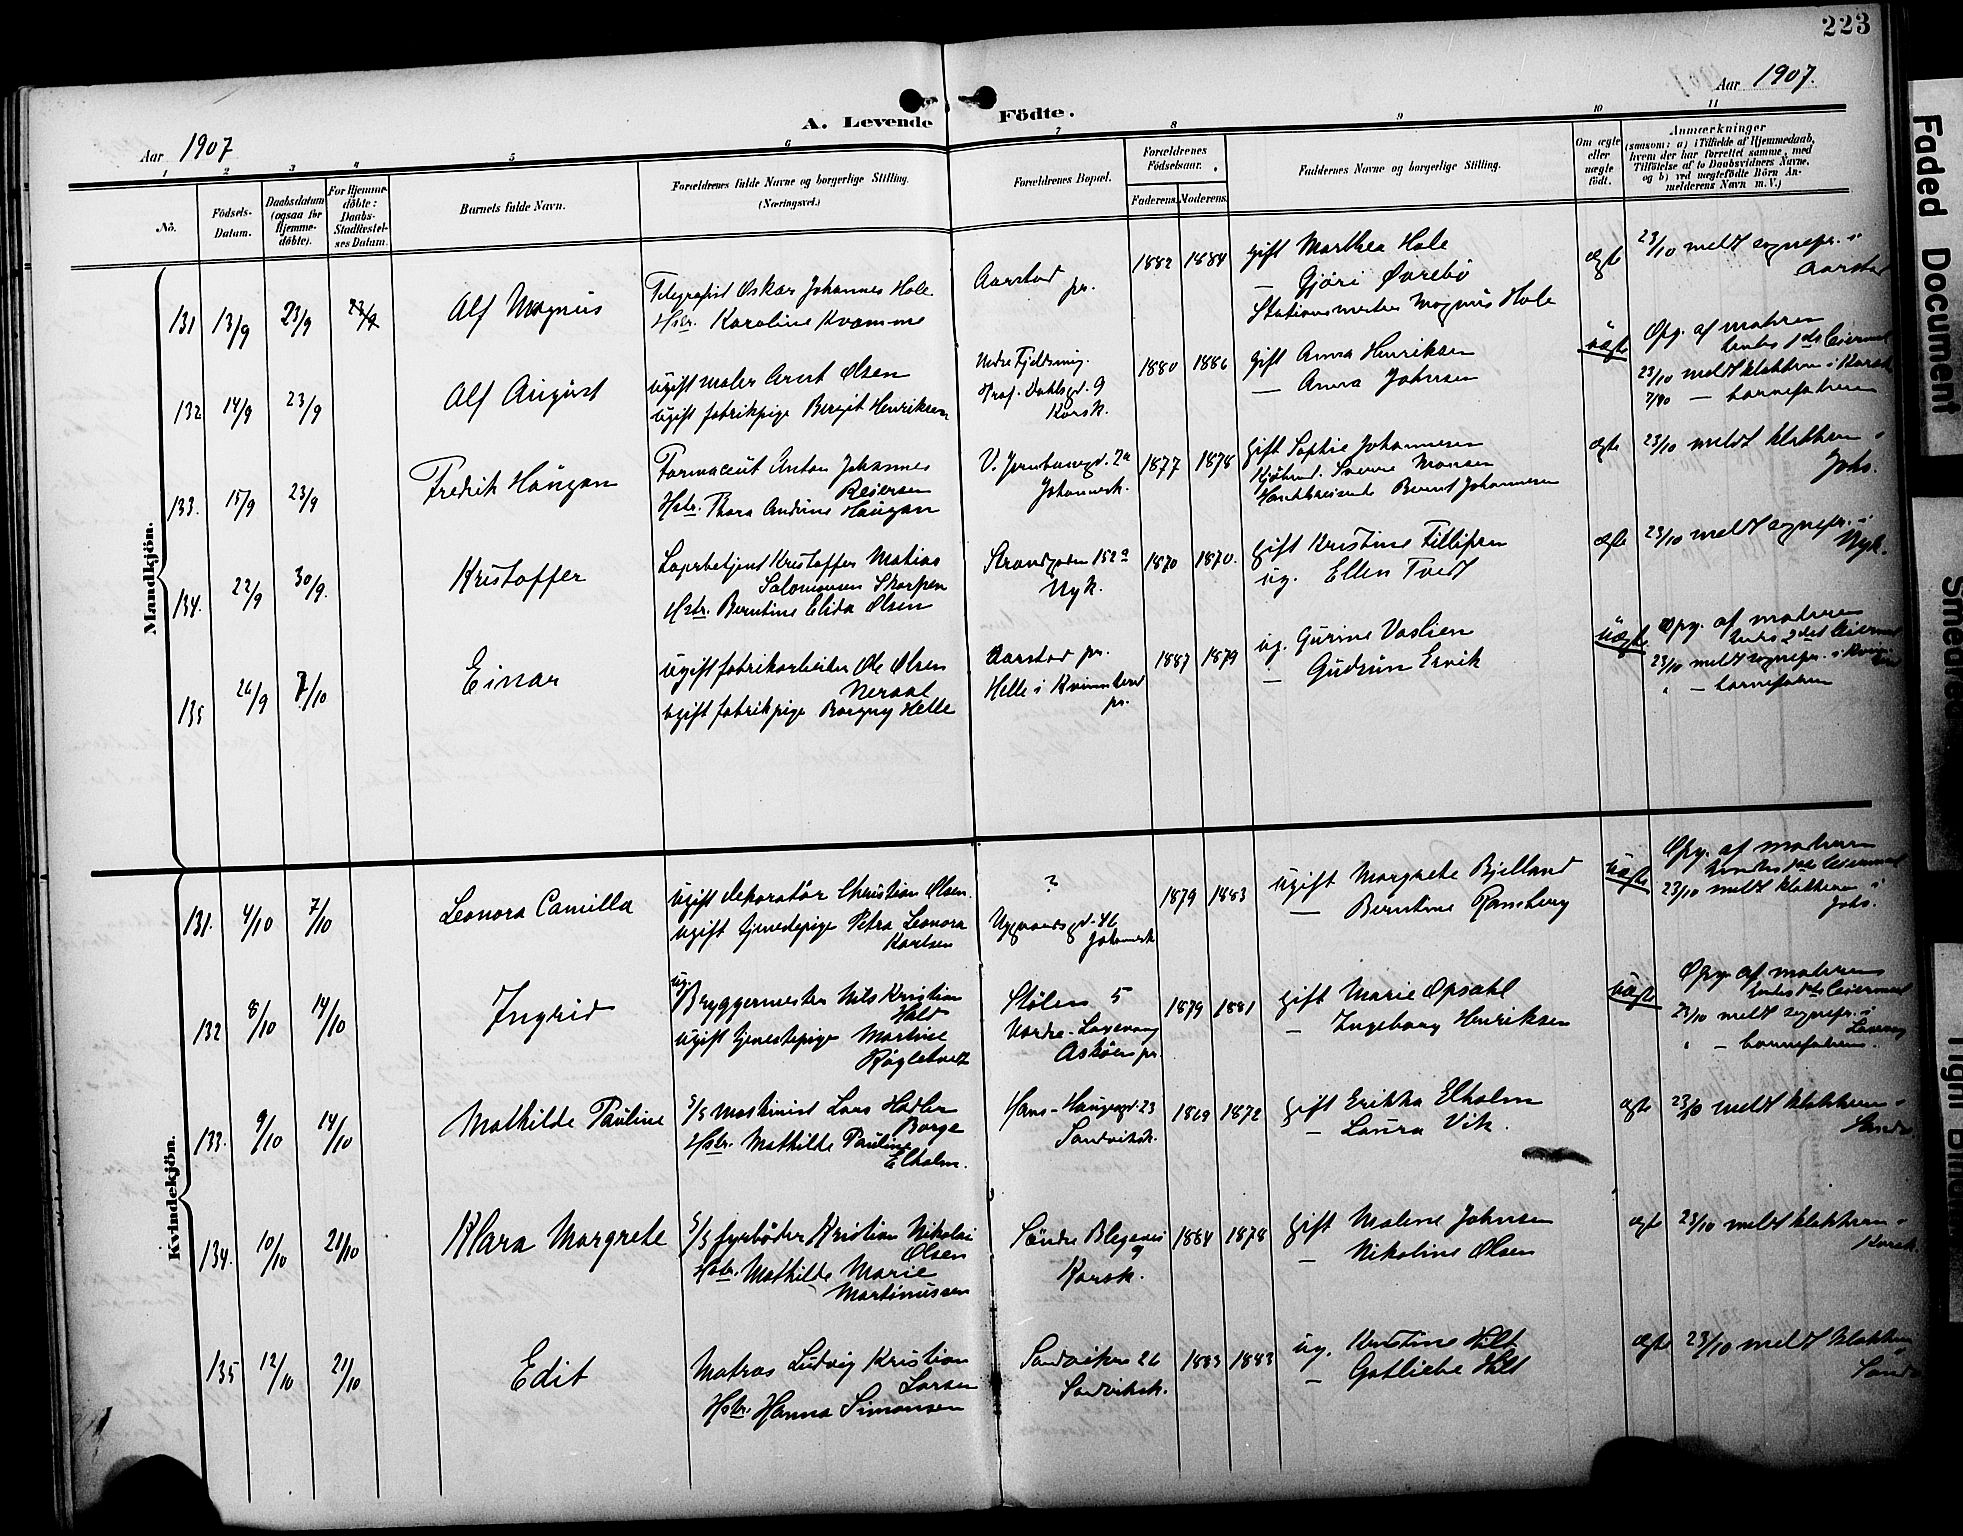 223
Aar 1907
A. Levende Födte.
Aar 1907.
1 2 3 4 5 6 7 8 9 10 11
Nö.
Födsels-Datum.
Daabsdatum (ogsaa for Hjemme-döbte).
For Hjemme-döbte: Daabs-Stadfæstel-ses Datum.
Barnets fulde Navn.
Forældrenes fulde Navne og borgerlige Stilling.
(Næringsvei.)
Forældrenes Bopæl.
Forældrenes Födselsaar.
Faderens. Moderens.
Faddernes Navne og borgerlige Stilling.
Om ægte eller uægte født.
Anmærkninger
(saasom: a) i Tilfælde af Hjemmedaab, hvem der har forrettet samme, med Tilföielse af to Daabsvidners Navne, og b) ved uægtefödte Börn Anmelderens Navn m. V.)
Mandkjön.
131 13/9 23/9 23/9 Alf Magnus
Telegrafist Oskar Johannes Hole
Hstr. Karoline Kvamme
Aarstad pr.
1882 1884
gift Marthea Hole
— Gjöri Øvrebö
Stationsmester Magnus Hole
ægte
23/10 meldt sognepr. i Aarstad
132 14/9 23/9 Alf August
ugift maler Arnt Olsen
ugift fabrikpige Bergit Henriksen
Nedre Fjeldsmug.
Prof. Dahlsgd. 9
Korsk.
1880 1886
gift Anna Henriksen
— Anna Johnsen
uægte
Opg. af moderen
23/10 meldt klokkeren i Korsk
— barnefaderen
133. 15/9 23/9 Fredrik Haugan
Farmaceut Anton Johannes Reiersen
Hstr. Thora Andrine Haugan
V. Jernbanegd. 2a
Johannesk.
1877 1878
gift Sophie Johannesen
Kjöbmd. Sverre Monsen
Bernt Johannesen
ægte
23/10 meldt klokkeren i Johs.
134. 22/9 30/9. Kristoffer
Lagerbetjent Kristoffer Matias Salomonsen Skorpen
Hstr. Berntine Elida Olsen
Strandgaden 152a
Nyk.
1870 1870.
gift Kristine Fillipsen
ug. Ellen Tvedt
ægte
23/10 meldt sognepr. i Nyk.
135 26/9 7/10 Einar
ugift fabrikarbeider Ole Olsen Neraal
ugift fabrikpige Borgny Helle
Aarstad pr.
Helle i Kvinnherred pr.
1887 1879
ug. Gurine Vaslien
— Gudrun Ervik
uægte
Opg. af moderen
23/10 meldt sognepr. i
" — barnefaderen
Kvindekjön.
131. 4/10 7/10 Leonora Camilla
ugift dekoratör Christian Olsen.
ugift tjenestepige Petra Leonora Karlsen
?
Nygaardsgd. 46
Johannesk
1879 1883
ugift Margrete Bjelland
— Berntine Ramsberg
uægte
Opg. af moderen
23/10 meldt klokkeren i Johs.
132 8/10 14/10 Ingrid
ug. Bryggermester Nils Kristian Hald
ugift tjenestepige Martine Røgletvedt
Stölen 5
Askøen pr.
1879 1881
gift Marie Opsahl
— Ingeborg Henriksen
uægte
Opg. af moderen
23/10 meldt sognepr. i
" — barnefaderen.
133. 9/10 14/10 Mathilde Pauline
S/S maskinist Lars Hadler Borge
Hstr. Mathilde Pauline Elholm.
Hans-Haugesgd. 23
Sandviksk.
1869 1872
gift Erikka Elholm
— Laura Vik.
ægte
23/10 meldt klokkeren i Sandv.
134. 10/10 21/10 Klara Margrete
S/S fyrböder Kristian Nikolai Olsen
Hstr. Mathilde Marie Martinussen
Söndre Blegevei 9
Korsk.
1884 1878
gift Malene Johnsen
— Nikoline Olsen
ægte
23/10 meldt klokkeren i Korsk.
135 12/10 21/10 Edit
Matros Ludvig Kristian Larsen
Hstr. Hanna Simonsen
Sandviken 26
Sandviksk.
1883 1883
ug. Kristine Hilt
— Gotliebe Hilt
ægte
23/10 meldt klokkeren i
Faded Document
Smeared
Tight Binding